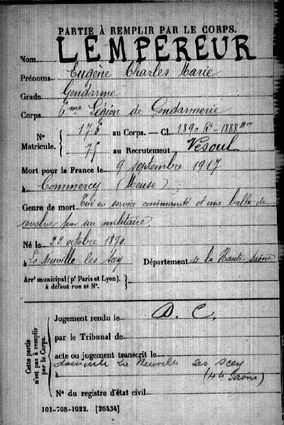 PARTIE À REMPLIR PAR LE CORPS.
Nom LEMPEREUR
Prénoms Eugène Charles Marie
Grade Gendarme
Corps 6me Légion de Gendarmerie
N° 176 au Corps. — Cl. 1890
Matricule. 75 au Recrutement Vesoul
Mort pour la France le 9 septembre 1917
à Commercy (Meuse)
Genre de mort Tué en service commandé d'une balle de
revolver par un militaire.
Né le 22 octobre 1870
à La Neuville les Scey Département de la Haute Saône
Arrt municipal (pr Paris et Lyon),
à défaut rue et N°.
Cette partie
n'est pas à remplir
par le Corps.
Jugement rendu le D. C.
par le Tribunal de
acte ou jugement transcrit le
La Neuville les Scey
(Hte Saône)
N° du registre d'état civil
101-708-1922. [26434]